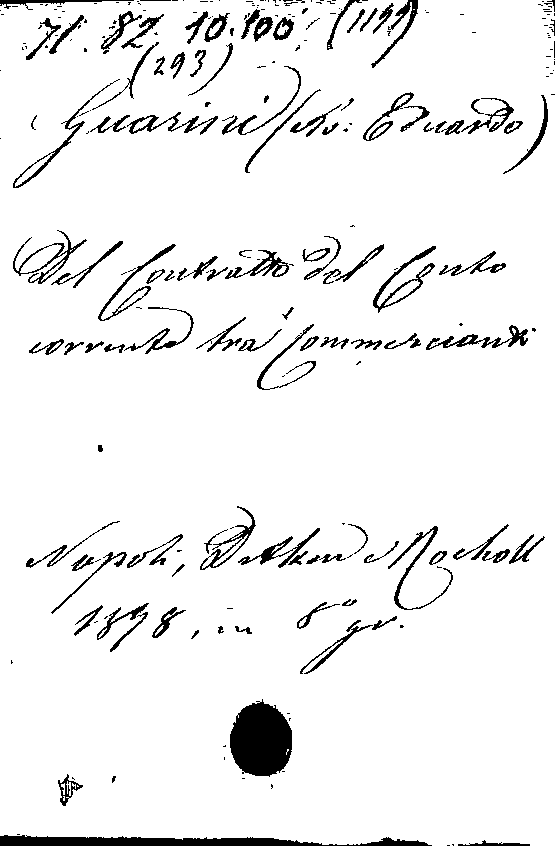 71. 82 10.100 (1199)
(293)
Guarini (Av: Eduardo)
Del Contratto del Conto
corrente tra Commercianti
Napoli, Detken e Rocholl
1898, in 8° gr.